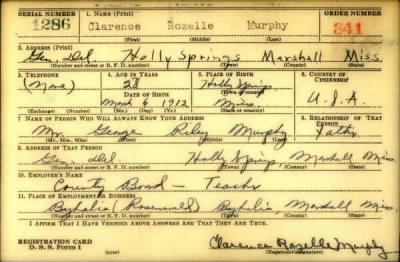 SERIAL NUMBER 1. NAME (Print) ORDER NUMBER
1286 Clarence Rozelle Murphy 341
(First) (Middle) (Last)
2. ADDRESS (Print)
Gen. Del. Holly Springs Marshall Miss
(Number and street or R. F. D. number) (Town) (County) (State)
3. TELEPHONE 4. AGE IN YEARS 5. PLACE OF BIRTH 6. COUNTRY OF CITIZENSHIP
(None) 28 Holly Springs
DATE OF BIRTH (Town or county)
March 6 1912 Miss. U.S.A.
(Exchange) (Number) (Mo.) (Day) (Yr.) (State or country)
7. NAME OF PERSON WHO WILL ALWAYS KNOW YOUR ADDRESS 8. RELATIONSHIP OF THAT PERSON
Mr. George Riley Murphy Father
(Mr., Mrs., Miss) (First) (Middle) (Last)
9. ADDRESS OF THAT PERSON
Gen. Del Holly Springs, Marshall Miss
(Number and street or R. F. D. number) (Town) (County) (State)
10. EMPLOYER'S NAME
County Board — Teacher
11. PLACE OF EMPLOYMENT OR BUSINESS
Byhalia (Rosenwald) Byhalia, Marshall Miss
(Number and street or R. F. D. number) (Town) (County) (State)
I AFFIRM THAT I HAVE VERIFIED ABOVE ANSWERS AND THAT THEY ARE TRUE.
REGISTRATION CARD
D. S. S. Form 1 Clarence Rozelle Murphy
(Registrant's signature)